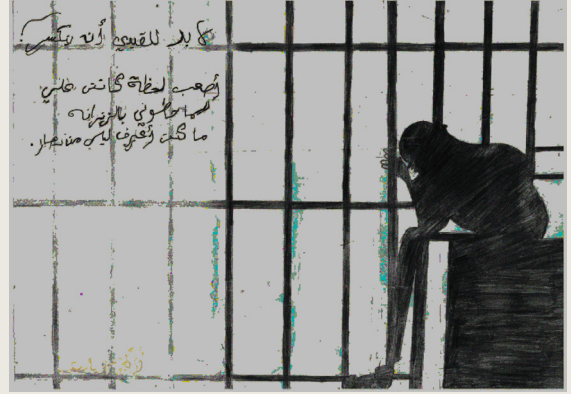 لا بد للقيد أن ينكسر.
أصعب لحظة كانت علي
لما حاطوني بالزنزانه
ما كنت أعرف ليل من نهار.